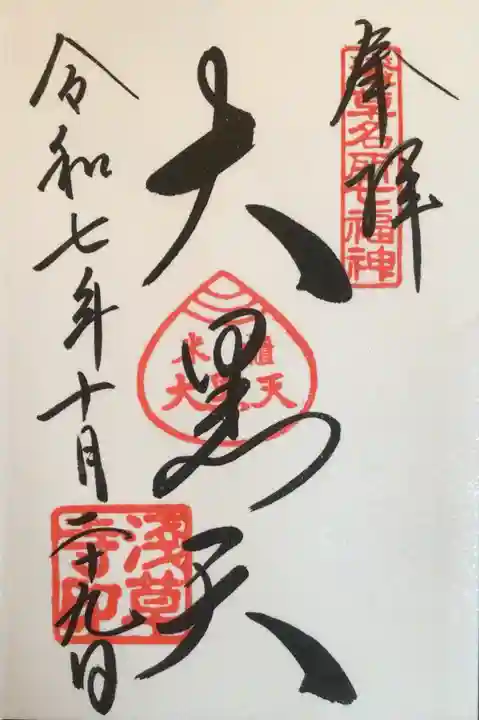 奉拝
浅草名所七福神
大黒天
米櫃
大黒天
令和七年十月二十九日
浅草寺印